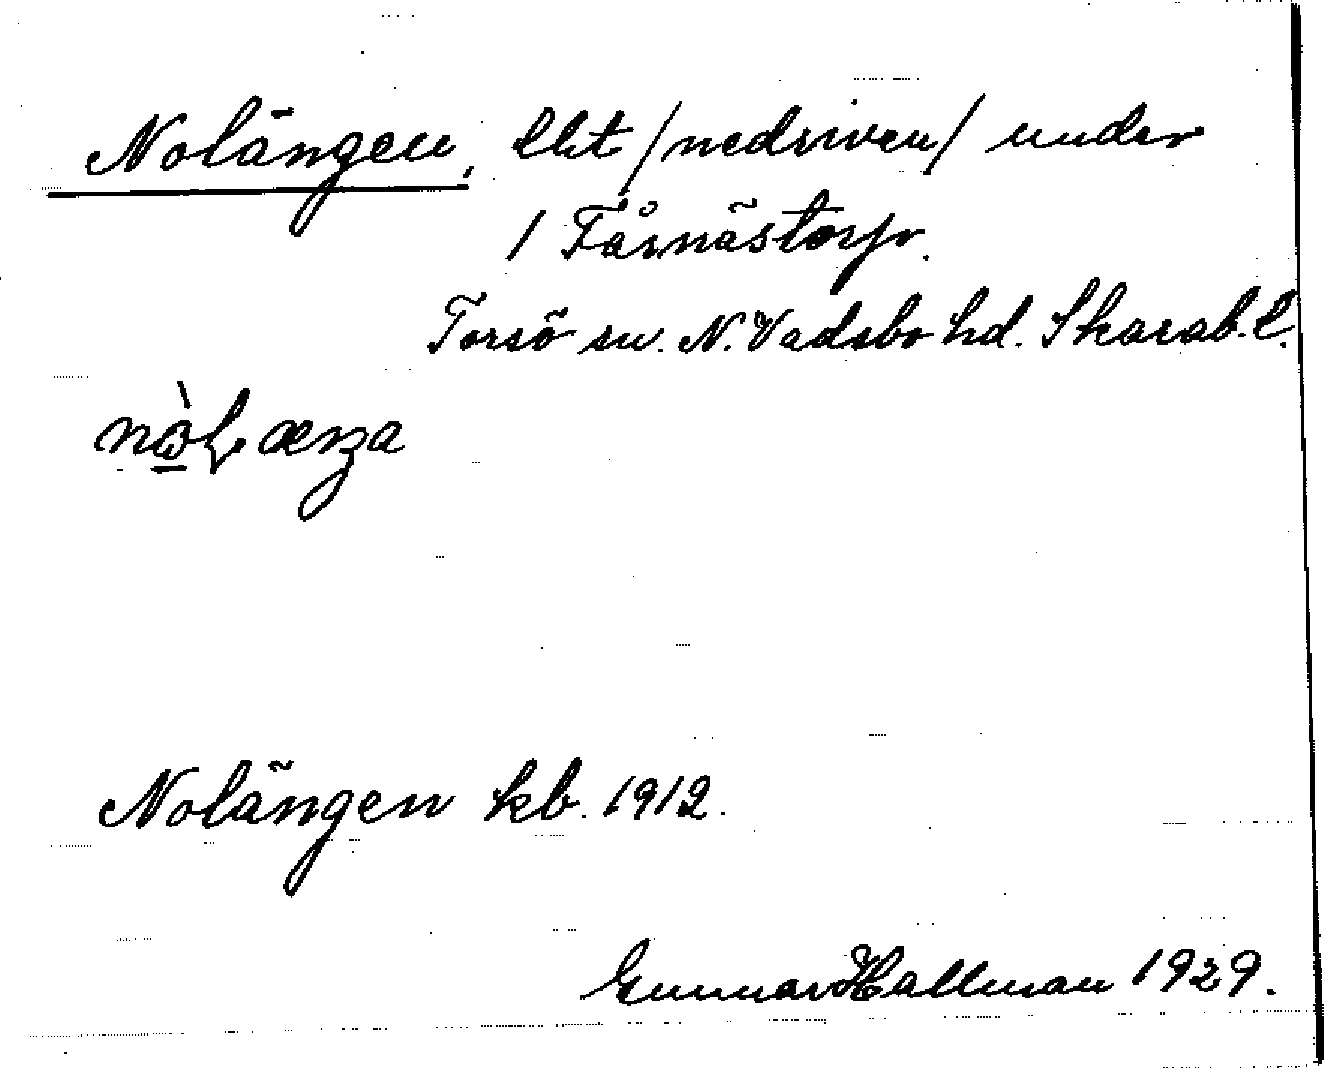 Nolängen, lht /nedriven/ under
1 Fårnästorp.
Torsö sn. N. Vadsbo hd. Skarab. l.
Nolängen kb. 1912.
Gunnar Hallman 1929.